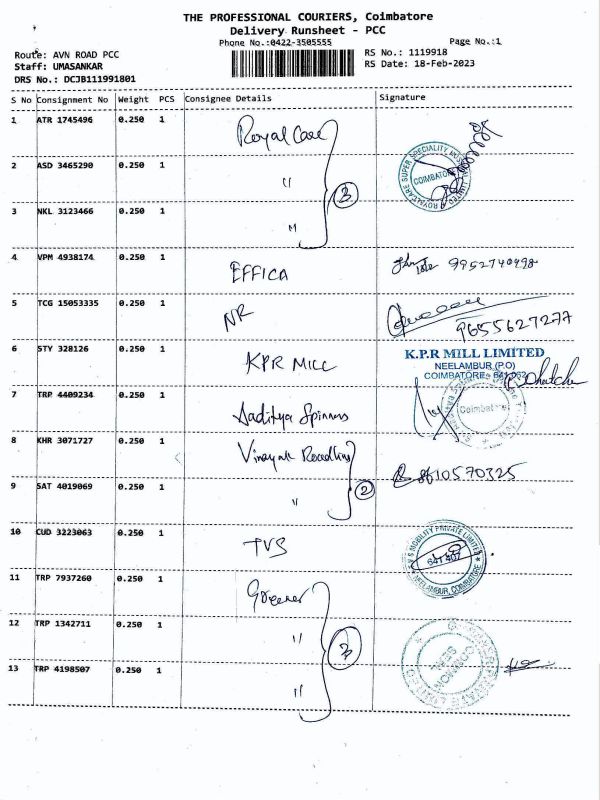 THE PROFESSIONAL COURIERS, Coimbatore
Delivery Runsheet - PCC
Phone No.:0422-3505555
Page No.:1
Route: AVN ROAD PCC
RS No.: 1119918
Staff: UMASANKAR
RS Date: 18-Feb-2023
DRS No.: DCJB111991801
S No Consignment No Weight PCS Consignee Details Signature
1 ATR 1745496 0.250 1 Royal Care
2 ASD 3465290 0.250 1 "
3
ROYALCARE SUPER SPECIALITY HOSPITAL LIMITED
COIMBATORE
3 NKL 3123466 0.250 1 "
4 VPM 4938174 0.250 1 EFFICA 9952740498
5 TCG 15053335 0.250 1 NR 9655627277
6 STY 328126 0.250 1 KPR MILL
K.P.R MILL LIMITED
NEELAMBUR (P.O)
COIMBATORE - 641 062
7 TRP 4409234 0.250 1 Aaditya Spinners
Coimbatore
8 KHR 3071727 0.250 1 Vinayak 8610570325
9 SAT 4019069 0.250 1 "
2
10 CUD 3223063 0.250 1 TVS
MOBILITY PRIVATE LIMITED
641 407
NEELAMBUR, COIMBATORE
11 TRP 7937260 0.250 1
12 TRP 1342711 0.250 1 "
13 TRP 4198507 0.250 1 "